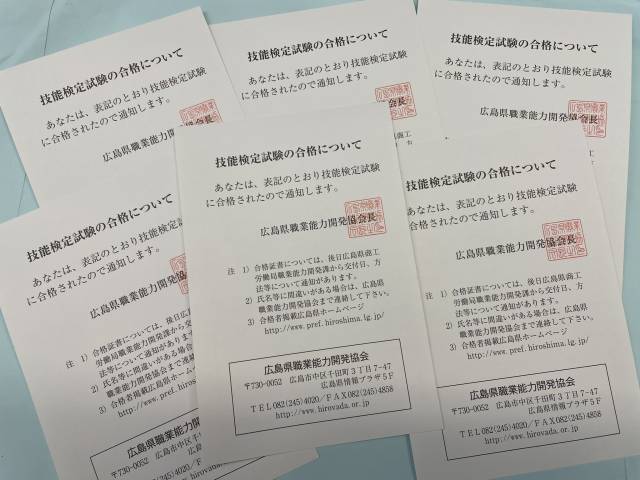 技能検定試験の合格について
あなたは、表記のとおり技能検定試験
に合格されたので通知します。
広島県職業能力開発協会長
技能検定試験の合格について
あなたは、表記のとおり技能検定試験
に合格されたので通知します。
広島県職業能力開発
技能検定試験の合格について
あなたは、表記のとおり技能検定試験
に合格されたので通知します。
広島県職業能力開発協会長
技能検定試験の合格について
あなたは、表記のとおり技能検定試験
に合格されたので通知します。
広島県職業能力開発協会長
注 1) 合格証書については、後日広島県商工
労働局職業能力開発課から交付日、方
法等について通知があります。
2) 氏名等に間違いがある場合は、広島県
職業能力開発協会まで連絡して下さい。
3) 合格者掲載広島県ホームページ
http://www.pref.hiroshima.lg.jp/
広島県職業能力開発協会
〒730-0052 広島市中区千田町3丁目7-47
広島県情報プラザ5F
TEL082(245)4020/FAX082(245)4858
http://www.hirovada.or.jp
技能検定試験の合格について
あなたは、表記のとおり技能検定
に合格されたので通知します。
広島県職業能力開発協会
注 1) 合格証書については、後日広島
労働局職業能力開発課から交
法等について通知があります
2) 氏名等に間違いがある場合は
職業能力開発協会まで連絡
3) 合格者掲載広島県ホーム
http://www.pref.hiro
広島県職業能力
〒730-0052 広島市中区千
広島県
TEL082(245)4020/
技能検定試験の合格について
あなたは、表記のとおり技能検定試験
に合格されたので通知します。
広島県職業能力開発協会長
合格証書については、後日広島県商工
労働局職業能力開発課から交付日、方
法等について通知があります。
氏名等に間違いがある場合は、広島県
職業能力開発協会まで連絡して下さい。
合格者掲載広島県ホームページ
http://www.pref.hiroshima.lg.jp/
広島県職業能力開発協会
〒730-0052 広島市中区千田町3丁目7-47
広島県情報プラザ5F
TEL082(245)4020/FAX082(245)4858
http://www.hirovada.or.jp